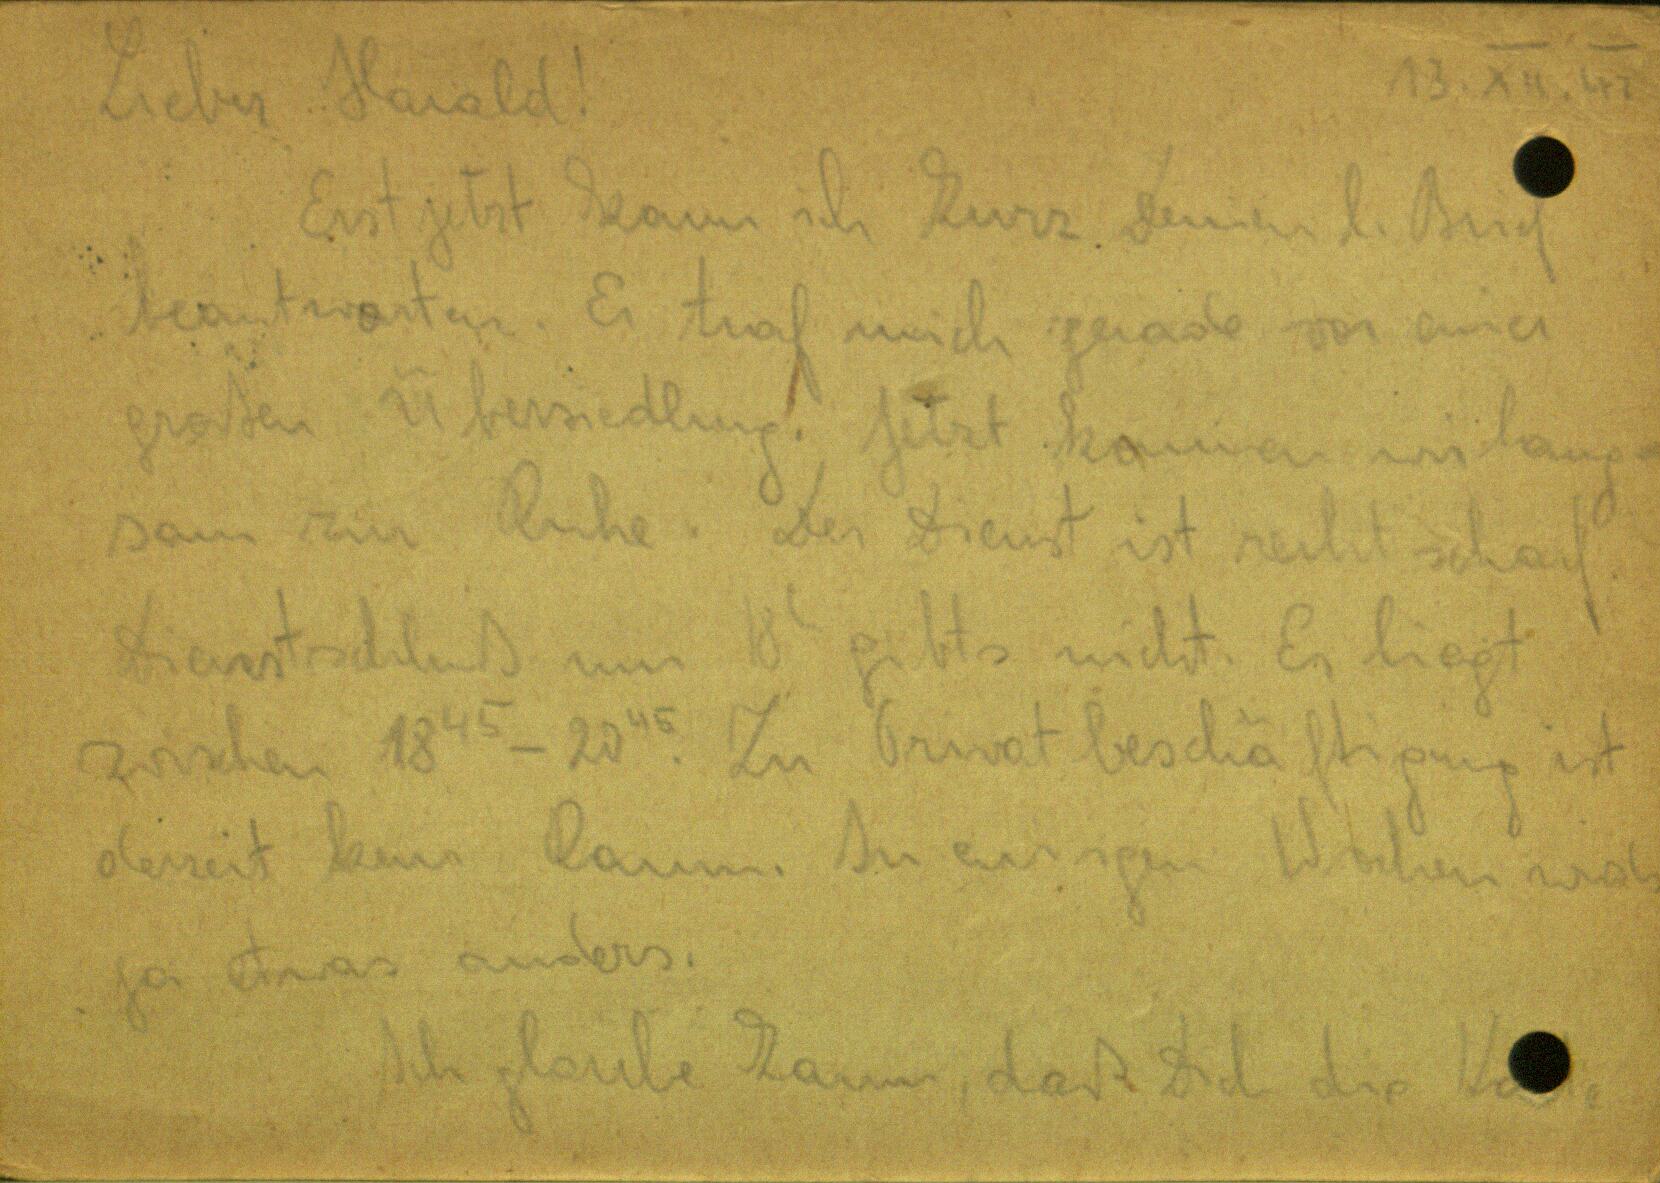 Lieber Harald! 13.XII.41
Erst jetzt kann ich kurz Deinen l. Brief
beantworten. Er traf mich gerade vor einer
großen Übersiedlung! Jetzt kommen wir lang-
sam zur Ruhe. Der Dienst ist recht scharf.
Dienstschluß um 18ʰ gibts nicht. Er liegt
zwischen 18⁴⁵ – 20⁴⁵. Zu Privatbeschäftigung ist
derzeit kein Raum. In einigen Wochen
ja etwas anders.
Ich glaube kaum, daß Dich die